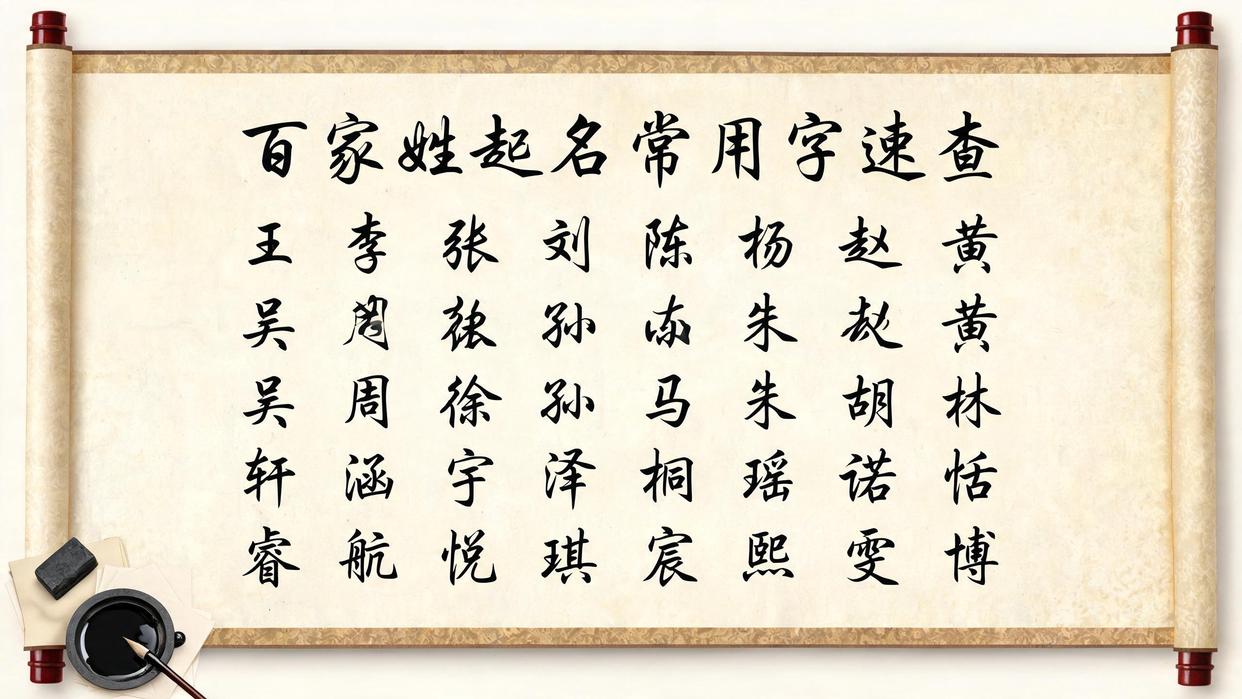 百家姓起名常用字速查
王 李 张 刘 陈 杨 赵 黄
吴 孙 朱 黄
吴 周 徐 孙 马 朱 胡 林
轩 涵 宇 泽 桐 瑶 诺 恬
睿 航 悦 琪 宸 熙 雯 博